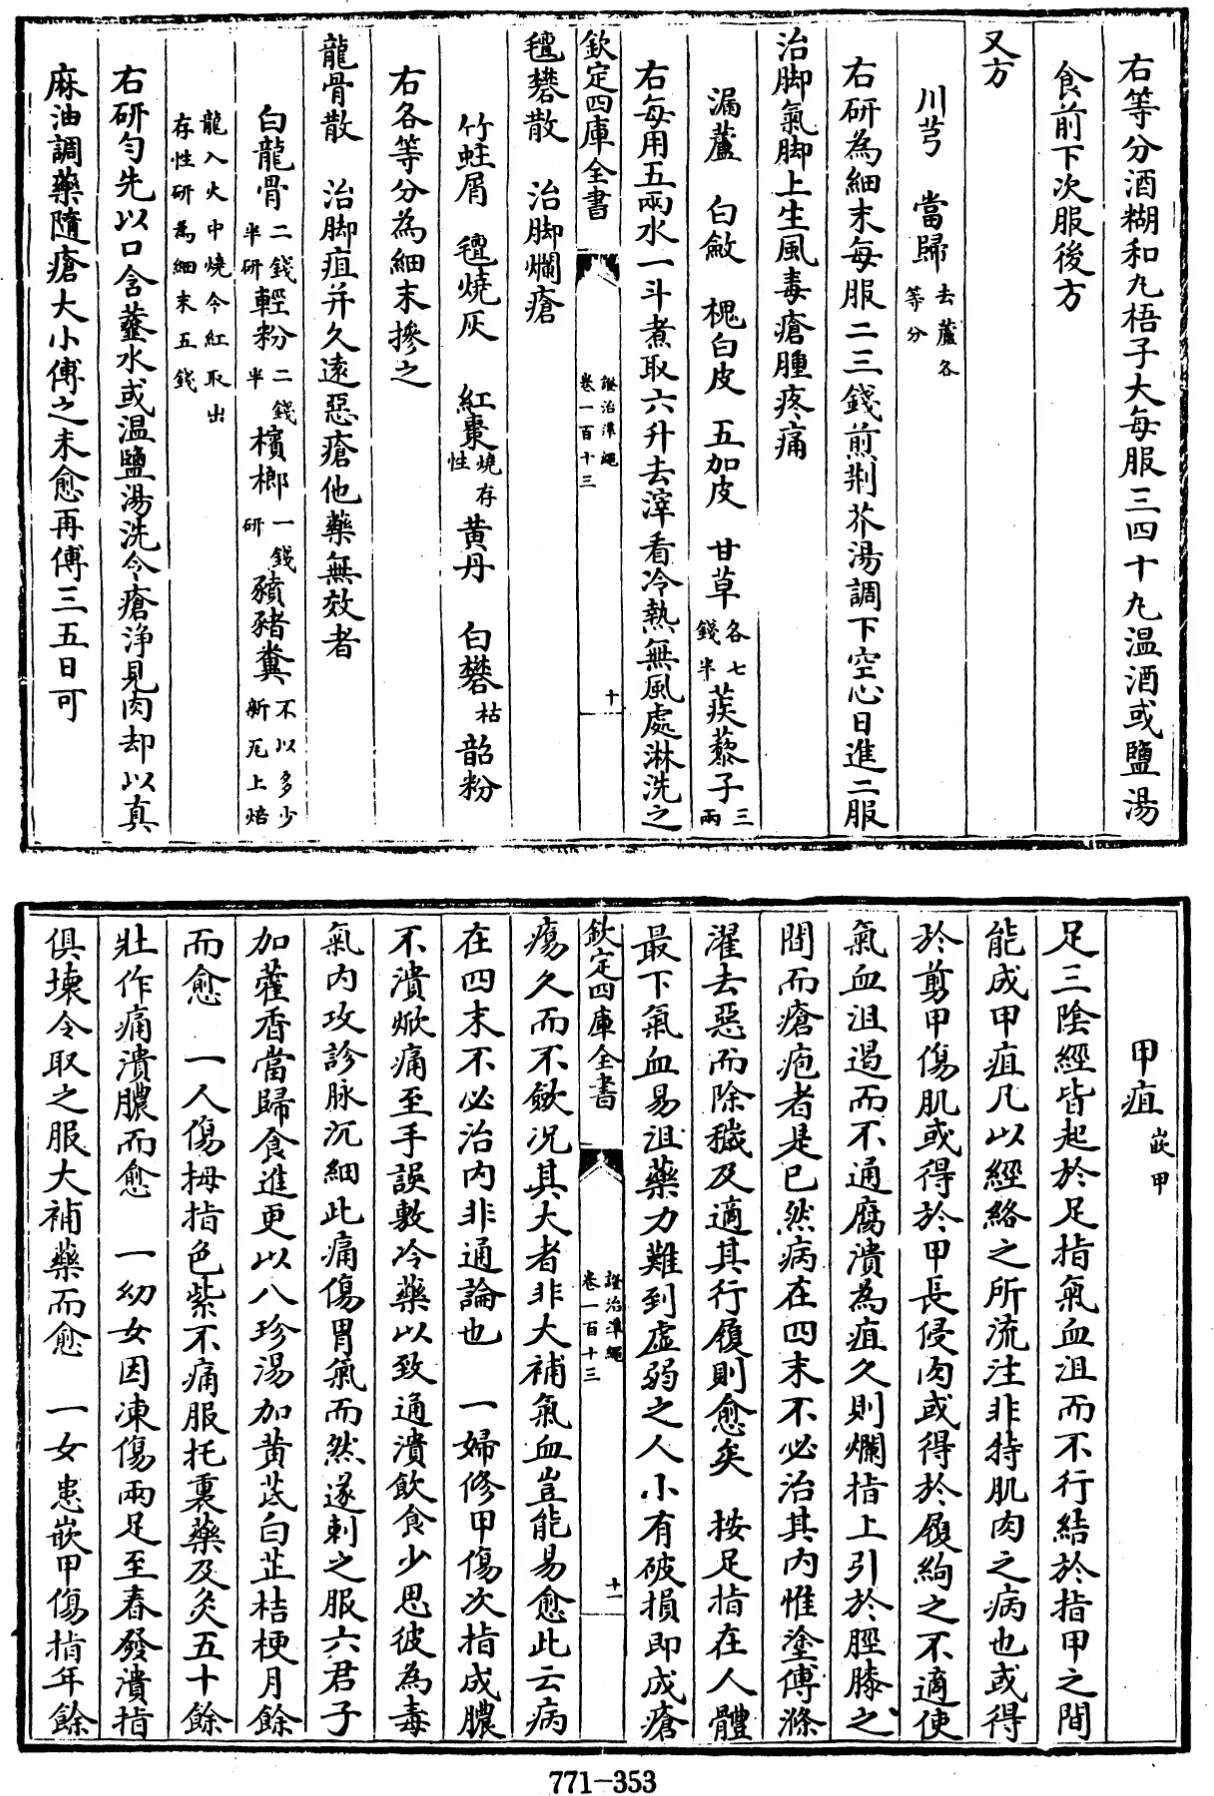 右等分酒糊和丸梧子大每服三四十丸温酒或鹽湯
食前下次服後方
又方
川芎 當歸去蘆各等分
右研為細末每服二三錢煎荆芥湯調下空心日進二服
治脚氣脚上生風毒瘡腫疼痛
漏蘆 白斂 槐白皮 五加皮 甘草各七錢半蒺藜子三兩
右每用五兩水一斗煮取六升去滓看冷熱無風處淋洗之
欽定四庫全書
證治準繩
卷一百十三
十
氊礬散 治脚爛瘡
竹蛀屑 氊燒灰 紅棗燒存性黄丹 白礬枯韶粉
右各等分為細末摻之
龍骨散 治脚疽并久遠惡瘡他藥無效者
白龍骨二錢半研輕粉二錢半檳榔一錢研豶豬糞不以多少新瓦上焙
龍入火中燒令紅取出存性研為細末五錢
右研勻先以口含虀水或温鹽湯洗令瘡浄見肉却以真
麻油調藥隨瘡大小傅之未愈再傅三五日可
甲疽嵌甲
足三陰經皆起於足指氣血沮而不行結於指甲之間
能成甲疽凡以經絡之所流注非特肌肉之病也或得
於剪甲傷肌或得於甲長侵肉或得於履絇之不適使
氣血沮遏而不通腐潰為疽久則爛指上引於脛膝之
間而瘡疱者是已然病在四末不必治其内惟塗傅滌
濯去惡而除穢及適其行履則愈矣 按足指在人體
最下氣血易沮藥力難到虛弱之人小有破損即成瘡
欽定四庫全書
證治準繩
卷一百十三
十一
瘍久而不斂况其大者非大補氣血豈能易愈此云病
在四末不必治内非通論也 一婦修甲傷次指成膿
不潰焮痛至手誤敷冷藥以致通潰飲食少思彼為毒
氣内攻診脉沉細此痛傷胃氣而然遂刺之服六君子
加藿香當歸食進更以八珍湯加黄茋白芷桔梗月餘
而愈 一人傷拇指色紫不痛服托裏藥及灸五十餘
壯作痛潰膿而愈 一幼女因凍傷兩足至春發潰指
俱壞令取之服大補藥而愈 一女患嵌甲傷指年餘
771-353